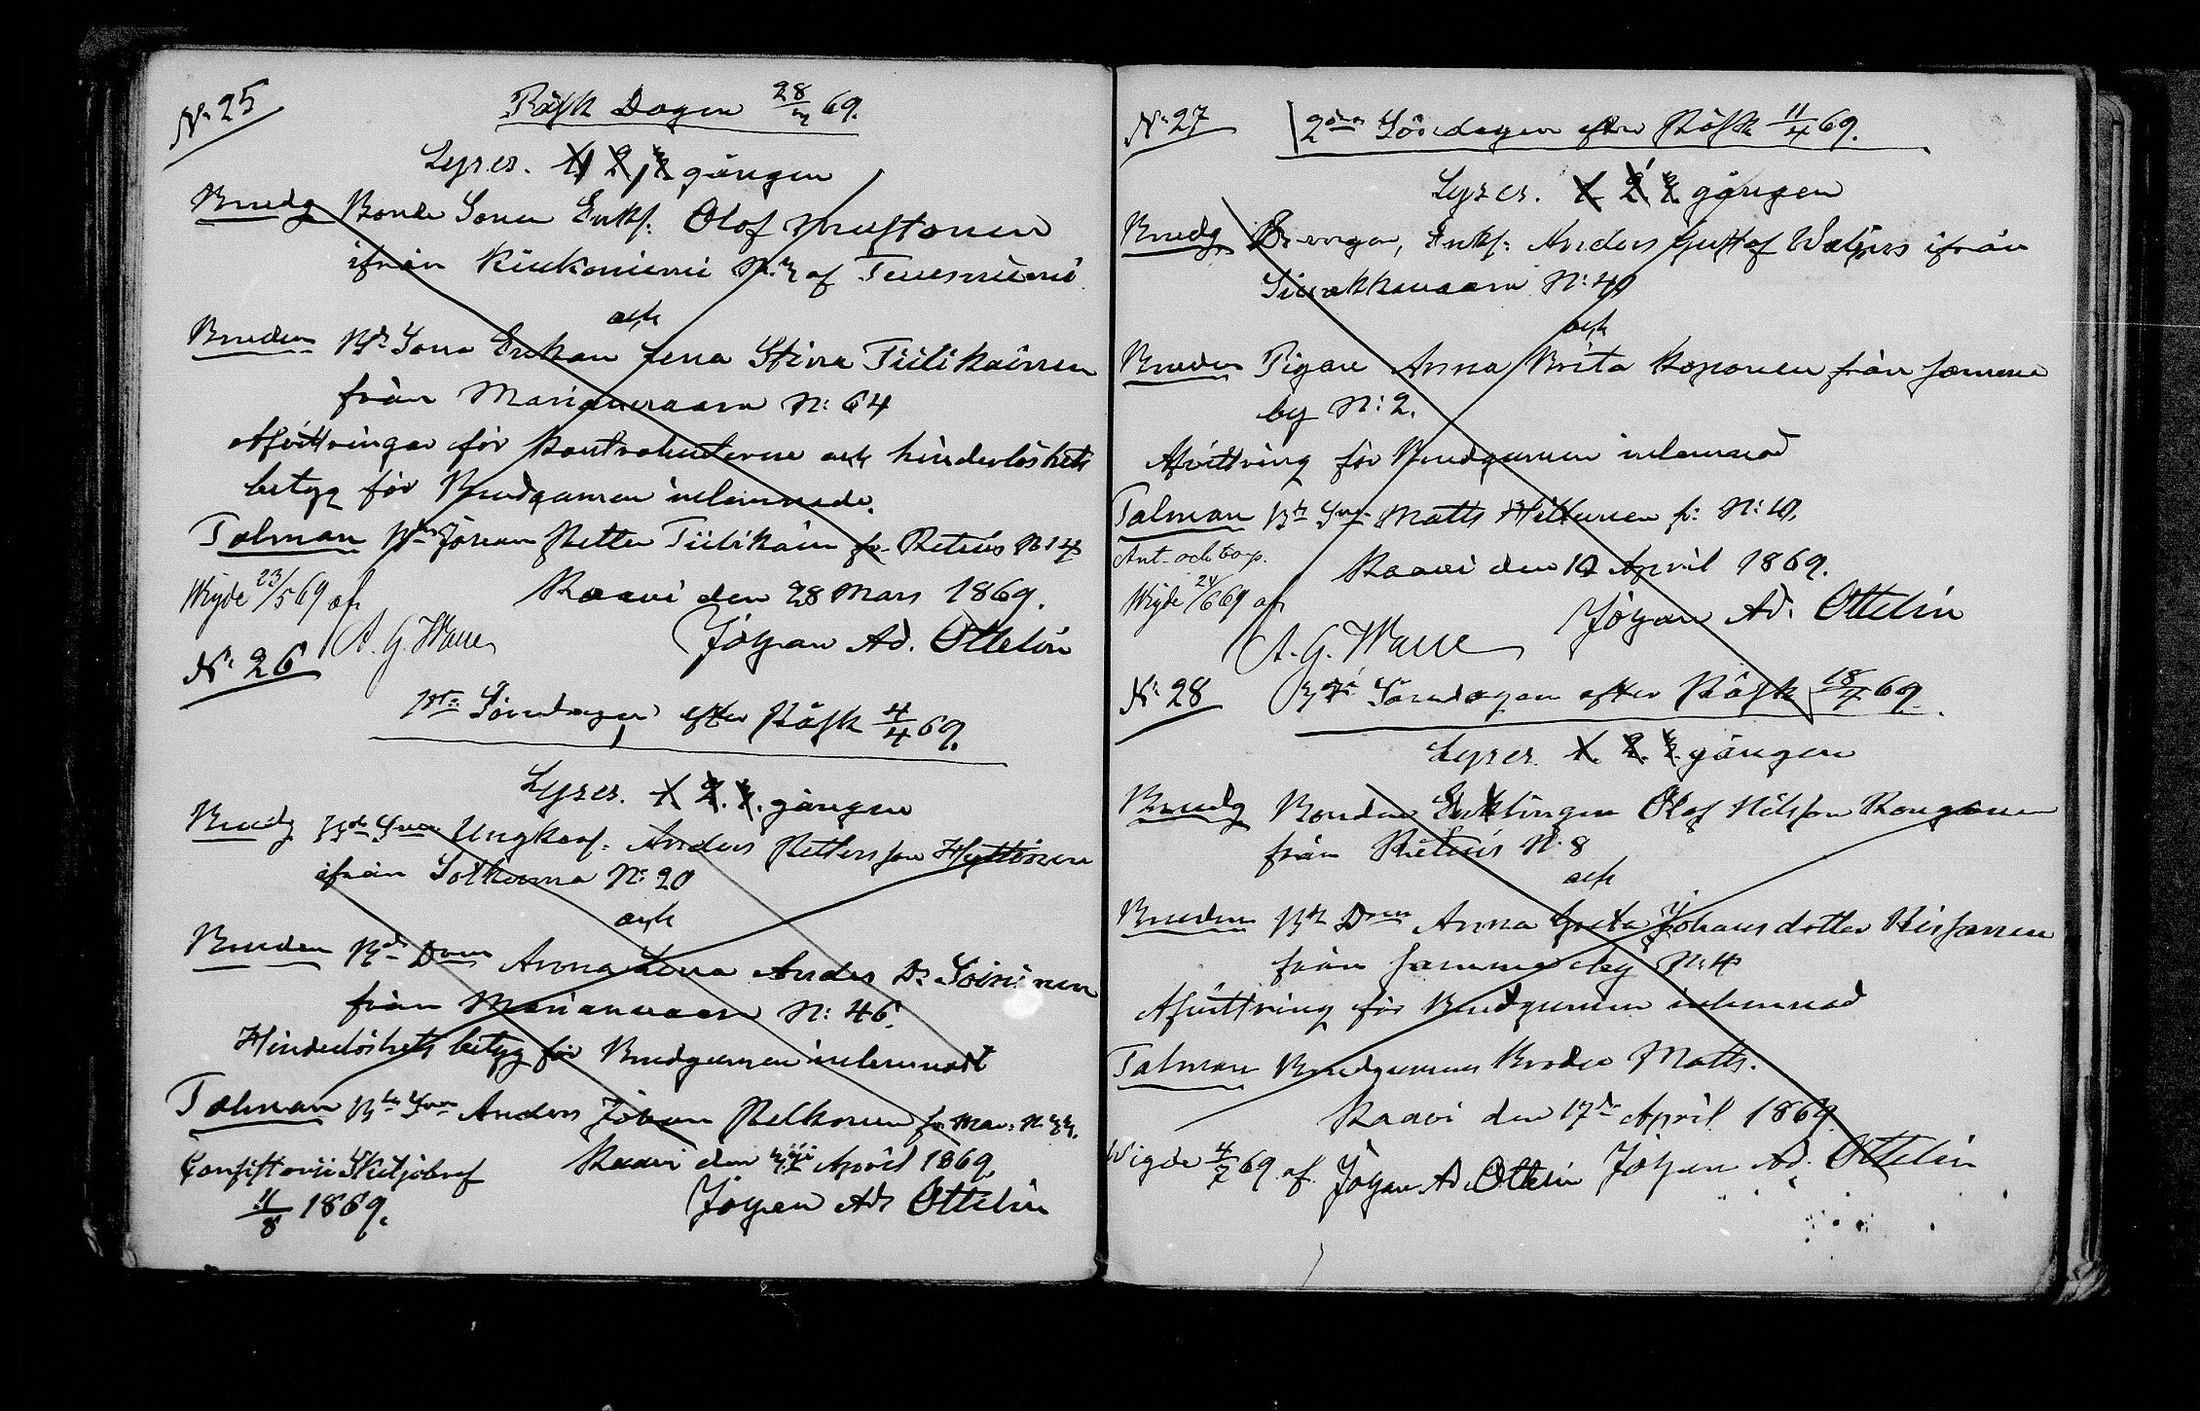 N: 25
Påsk Dagen 28/3 69.
Lyses. 1, 2, 3 gången
Brudg Bonde Sonen Enkl: Olof Mustonen
ifrån Kiukoniemi N: 3 af Tenesniemi
och
Bruden Bd Sona Enkan Lena Stina Tiilikainen
från Marianvaara N: 64
Afvittringar för Kontrahenterne och hinderlöshets
betyg för Brudgumen inlemnade.
Talman Bdn Johan Petter Tiilikain fr. Retuis N 14
Wigde 23/5 69 af
Kaavi den 28 Mars 1869.
A. G. Walle
Johan Ad. Ottelin
N: 26
1sta Söndagen efter Påsk 4/4 69.
Lyses. 1. 2. 3. gången
Brudg Bde Sonen Ungkarl: Anders Pettersson Hyttinen
ifrån Sotkuma N: 20
och
Bruden Bd Dottren Anna Lena Anders Dr Soininen
från Marianvaara N: 46.
Hinderlöshets betyg för Brudgumen inlemnadt
Talman Bde Sonen Anders Johan Pelkonen fr. Mar: N: 33.
Kaavi den 3dje April 1869.
Consistorii Skiljobref
11/8 1869.
Johan Ad. Ottelin
N: 27
2dra Söndagen efter Påsk 11/4 69.
Lyses. 1 2 3 gången
Brudg Drengen, Enkl: Anders Gustaf Waljus ifrån
Sivakkavaara N: 40
och
Bruden Pigan Anna Brita Koponen från samma
by N: 2.
Afvittring för Brudgumen inlemnad
Talman Bde Son Matts Hiltunen fr: N: 10.
Ant. och
Kaavi den 10 April 1869.
Wigde 24/6 69 af
Johan Ad. Ottelin
A. G. Walle
N: 28
3dje Söndagen efter Påsk 18/4 69.
Lyses. 1. 2. 3. gången
Brudg Bonden Enklingen Olof Nilsson Kongonen
från Retuis N: 8
och
Bruden Bde Dottren Anna Greta Johansdotter
från samma by N: 4
Afvittring för Brudgumen inlemnad
Talman Brudgumens Broder Matts.
Kaavi den 17de April 1869
Wigde 4/7 69 af Johan Ad. Ottelin Johan Ad. Ottelin